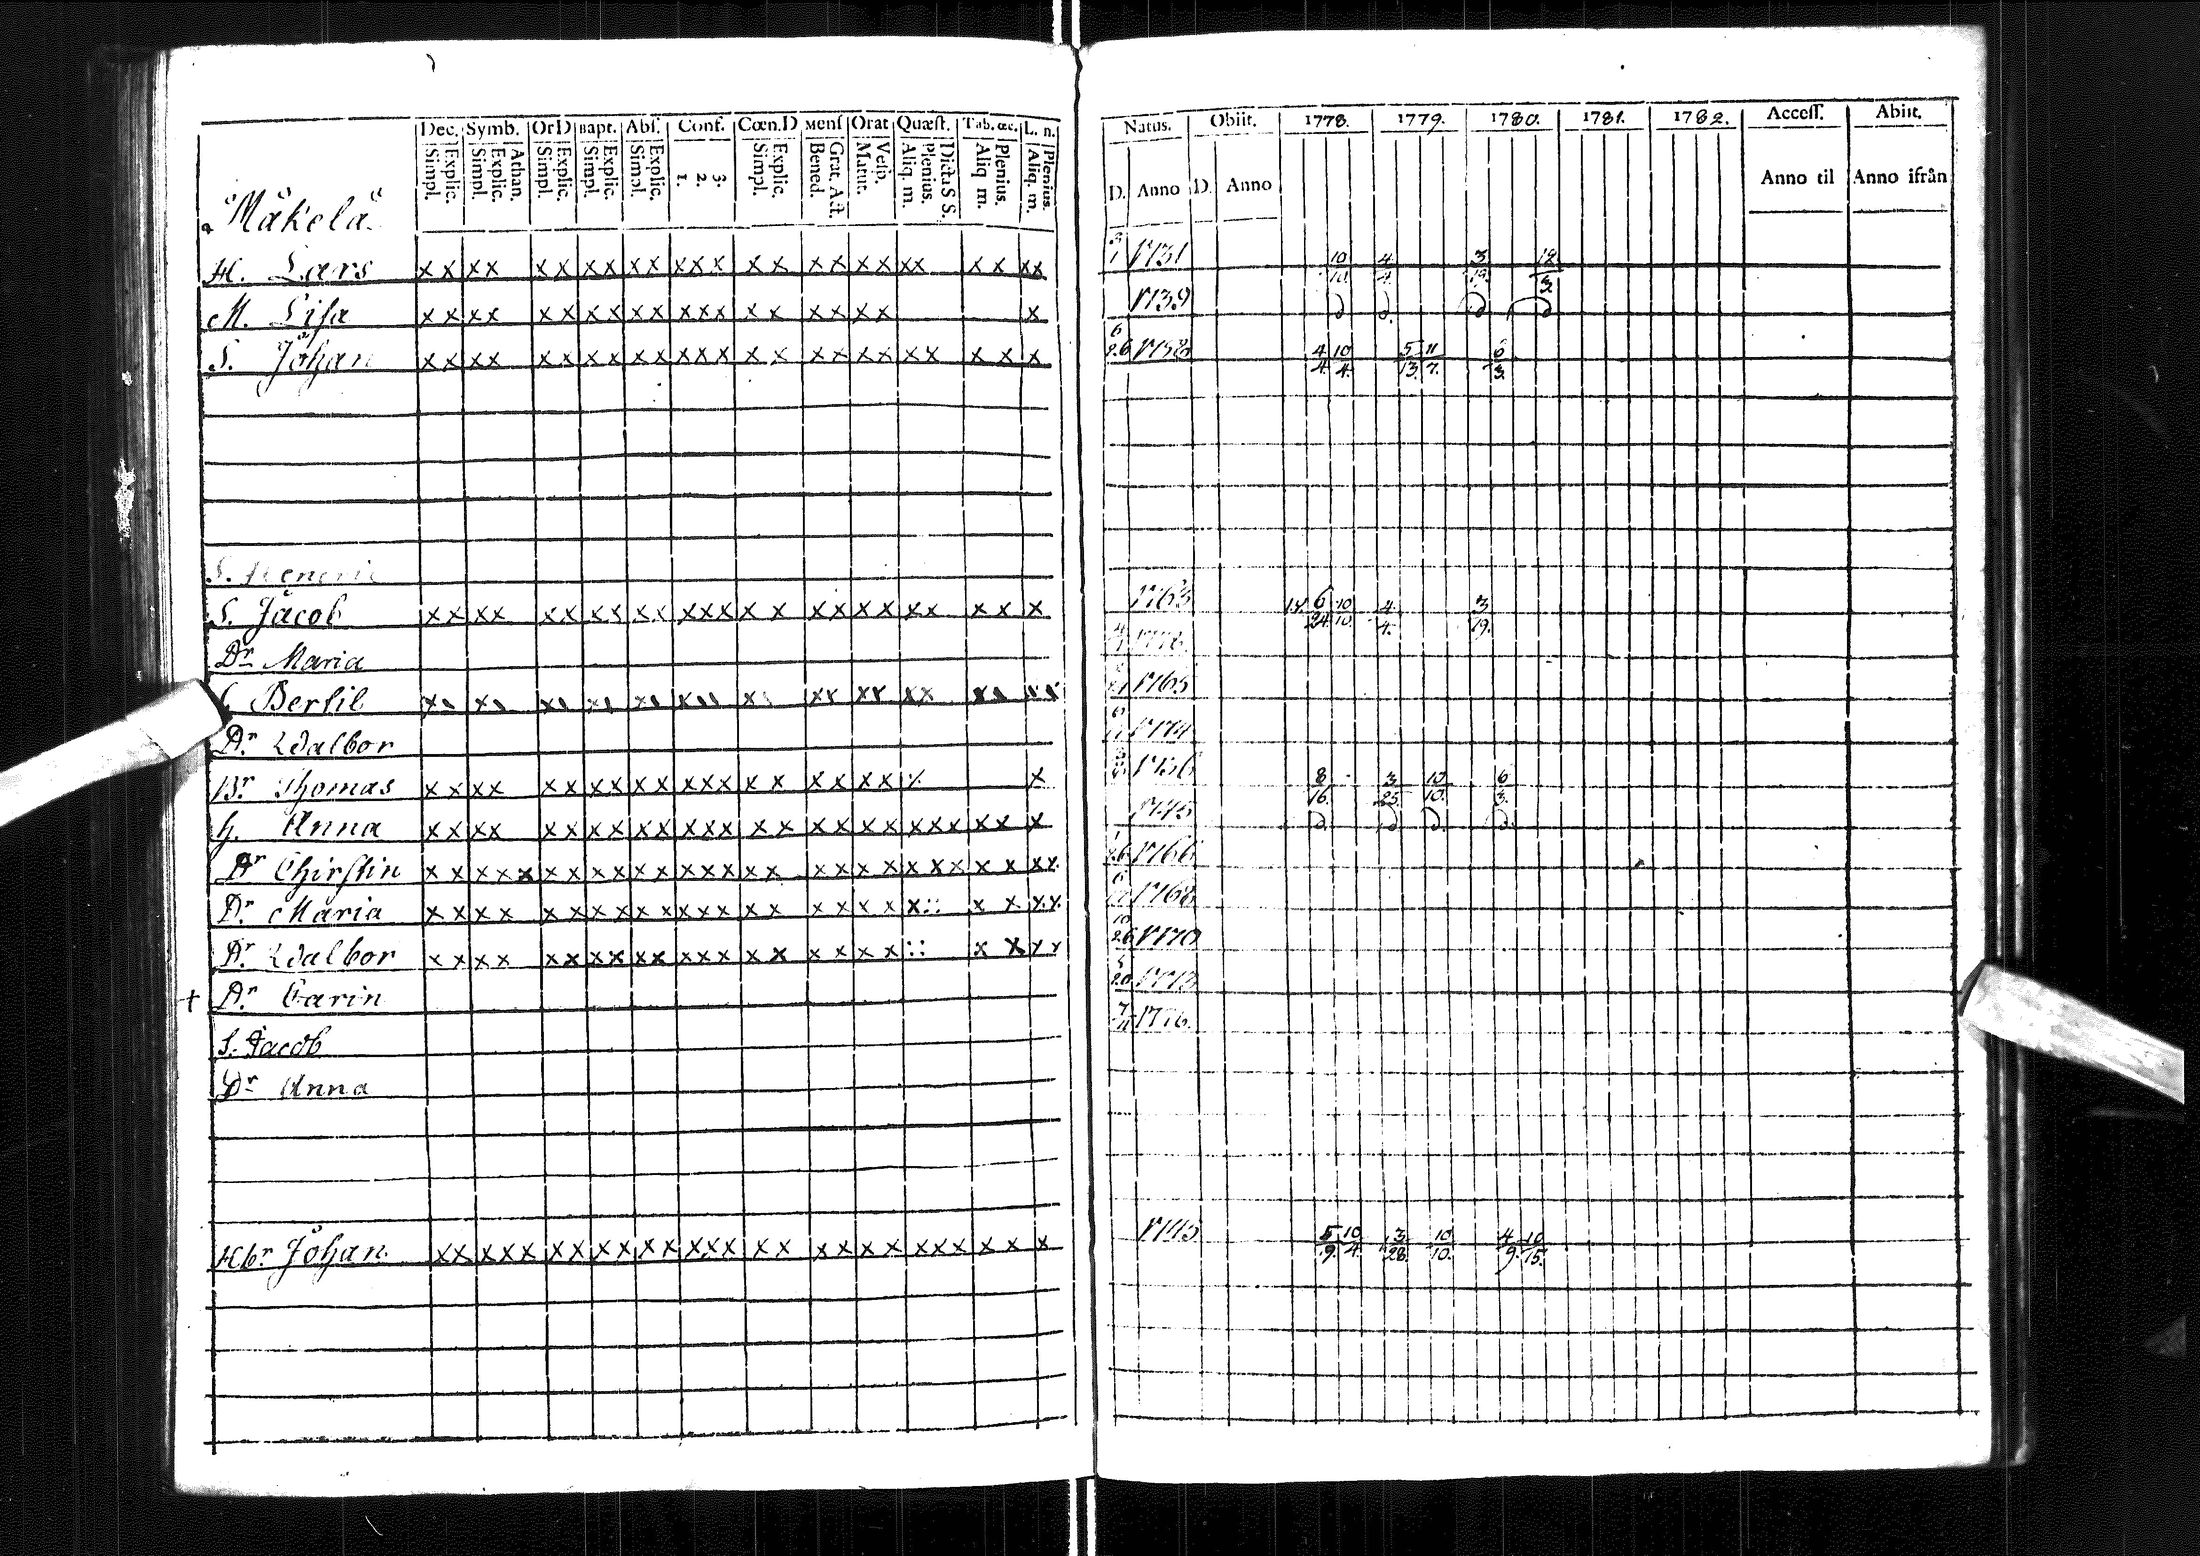 Dec. Symb. OrD Bapt. Abs. Conf. Cœn.D Mens Orat Quæst. Tab. œc. L. n.
Simpl. Explic. Simpl. Explic. Athan. Simpl. Explic. Simpl. Explic. Simpl. Explic. 1. 2. 3. Simpl. Explic. Bened. Grat. Act. Matut. Vesp. Aliq. m. Plenius. Dicta S S. Aliq m. Plenius. Aliq. m. Plenius.
Natus. Obiit. 1778. 1779. 1780. 1781. 1782. Access. Abiit.
D. Anno D. Anno Anno til Anno ifrån
Mäkelä
H. Lars x x x x x x x x x x x x x x x x x x x x x x x x x 1731 10/10. 4/4. 3/19. 12/3.
M. Lisa x x x x x x x x x x x x x x x x x x x 1739
S. Johan x x x x x x x x x x x x x x x x x x x x x x x x 6/26 1758 4/4. 10/4. 5/13. 11/7. 6/3.
S.
S. Jacob x x x x x x x x x x x x x x x x x x x x x x x x 1763 6/24. 10/10. 4/4. 3/19.
Dr Maria
Bertil 1765
Dr. Walbor 1774
Br. Thomas x x x x x x x x x x x x x x x x x x x x 1736 8/16. 3/25. 10/10. 6/3.
H. Anna x x x x x x x x x x x x x x x x x x x x x x x x x 1745
Dr Chirstin x x x x x x x x x x x x x x x x x x x x x x x x x x x 1766
Dr. Maria x x x x x x x x x x x x x x x x x x x x x x x x 1768
Dr. Walbor x x x x x x x x x x x x x x x x x x x x x x x 10/26 1770
+ Dr. Carin 1773
S. Jacob 7/11 1776.
Dr Anna
Hbr. Johan x x x x x x x x x x x x x x x x x x x x x x x x x x 1745 5/9. 10/4. 3/28. 10/10. 4/9. 10/15.